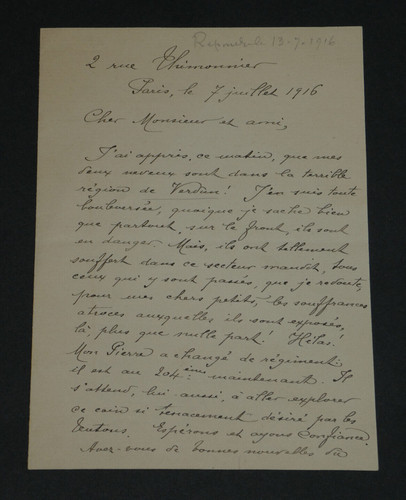 Répondu le 13-7-1916
2 rue Thimonnier
Paris, le 7 juillet 1916
Cher Monsieur et ami,
J'ai appris, ce matin, que mes
deux neveux sont dans la terrible
région de Verdun! J'en suis toute
bouleversée, quoique je sache bien
que partout, sur le front, ils sont
en danger. Mais, ils ont tellement
souffert dans ce secteur maudit, tous
ceux qui y sont passés, que je redoute,
pour mes chers petits, les souffrances
atroces auxquelles ils sont exposés,
là, plus que nulle part! Hélas!
Mon Pierre a changé de régiment:
il est au 204ème maintenant. Il
s'attend, lui aussi, à aller explorer
ce coin si tenacement désiré par les
teutons. Espérons et ayons confiance.
Avez-vous de bonnes nouvelles du